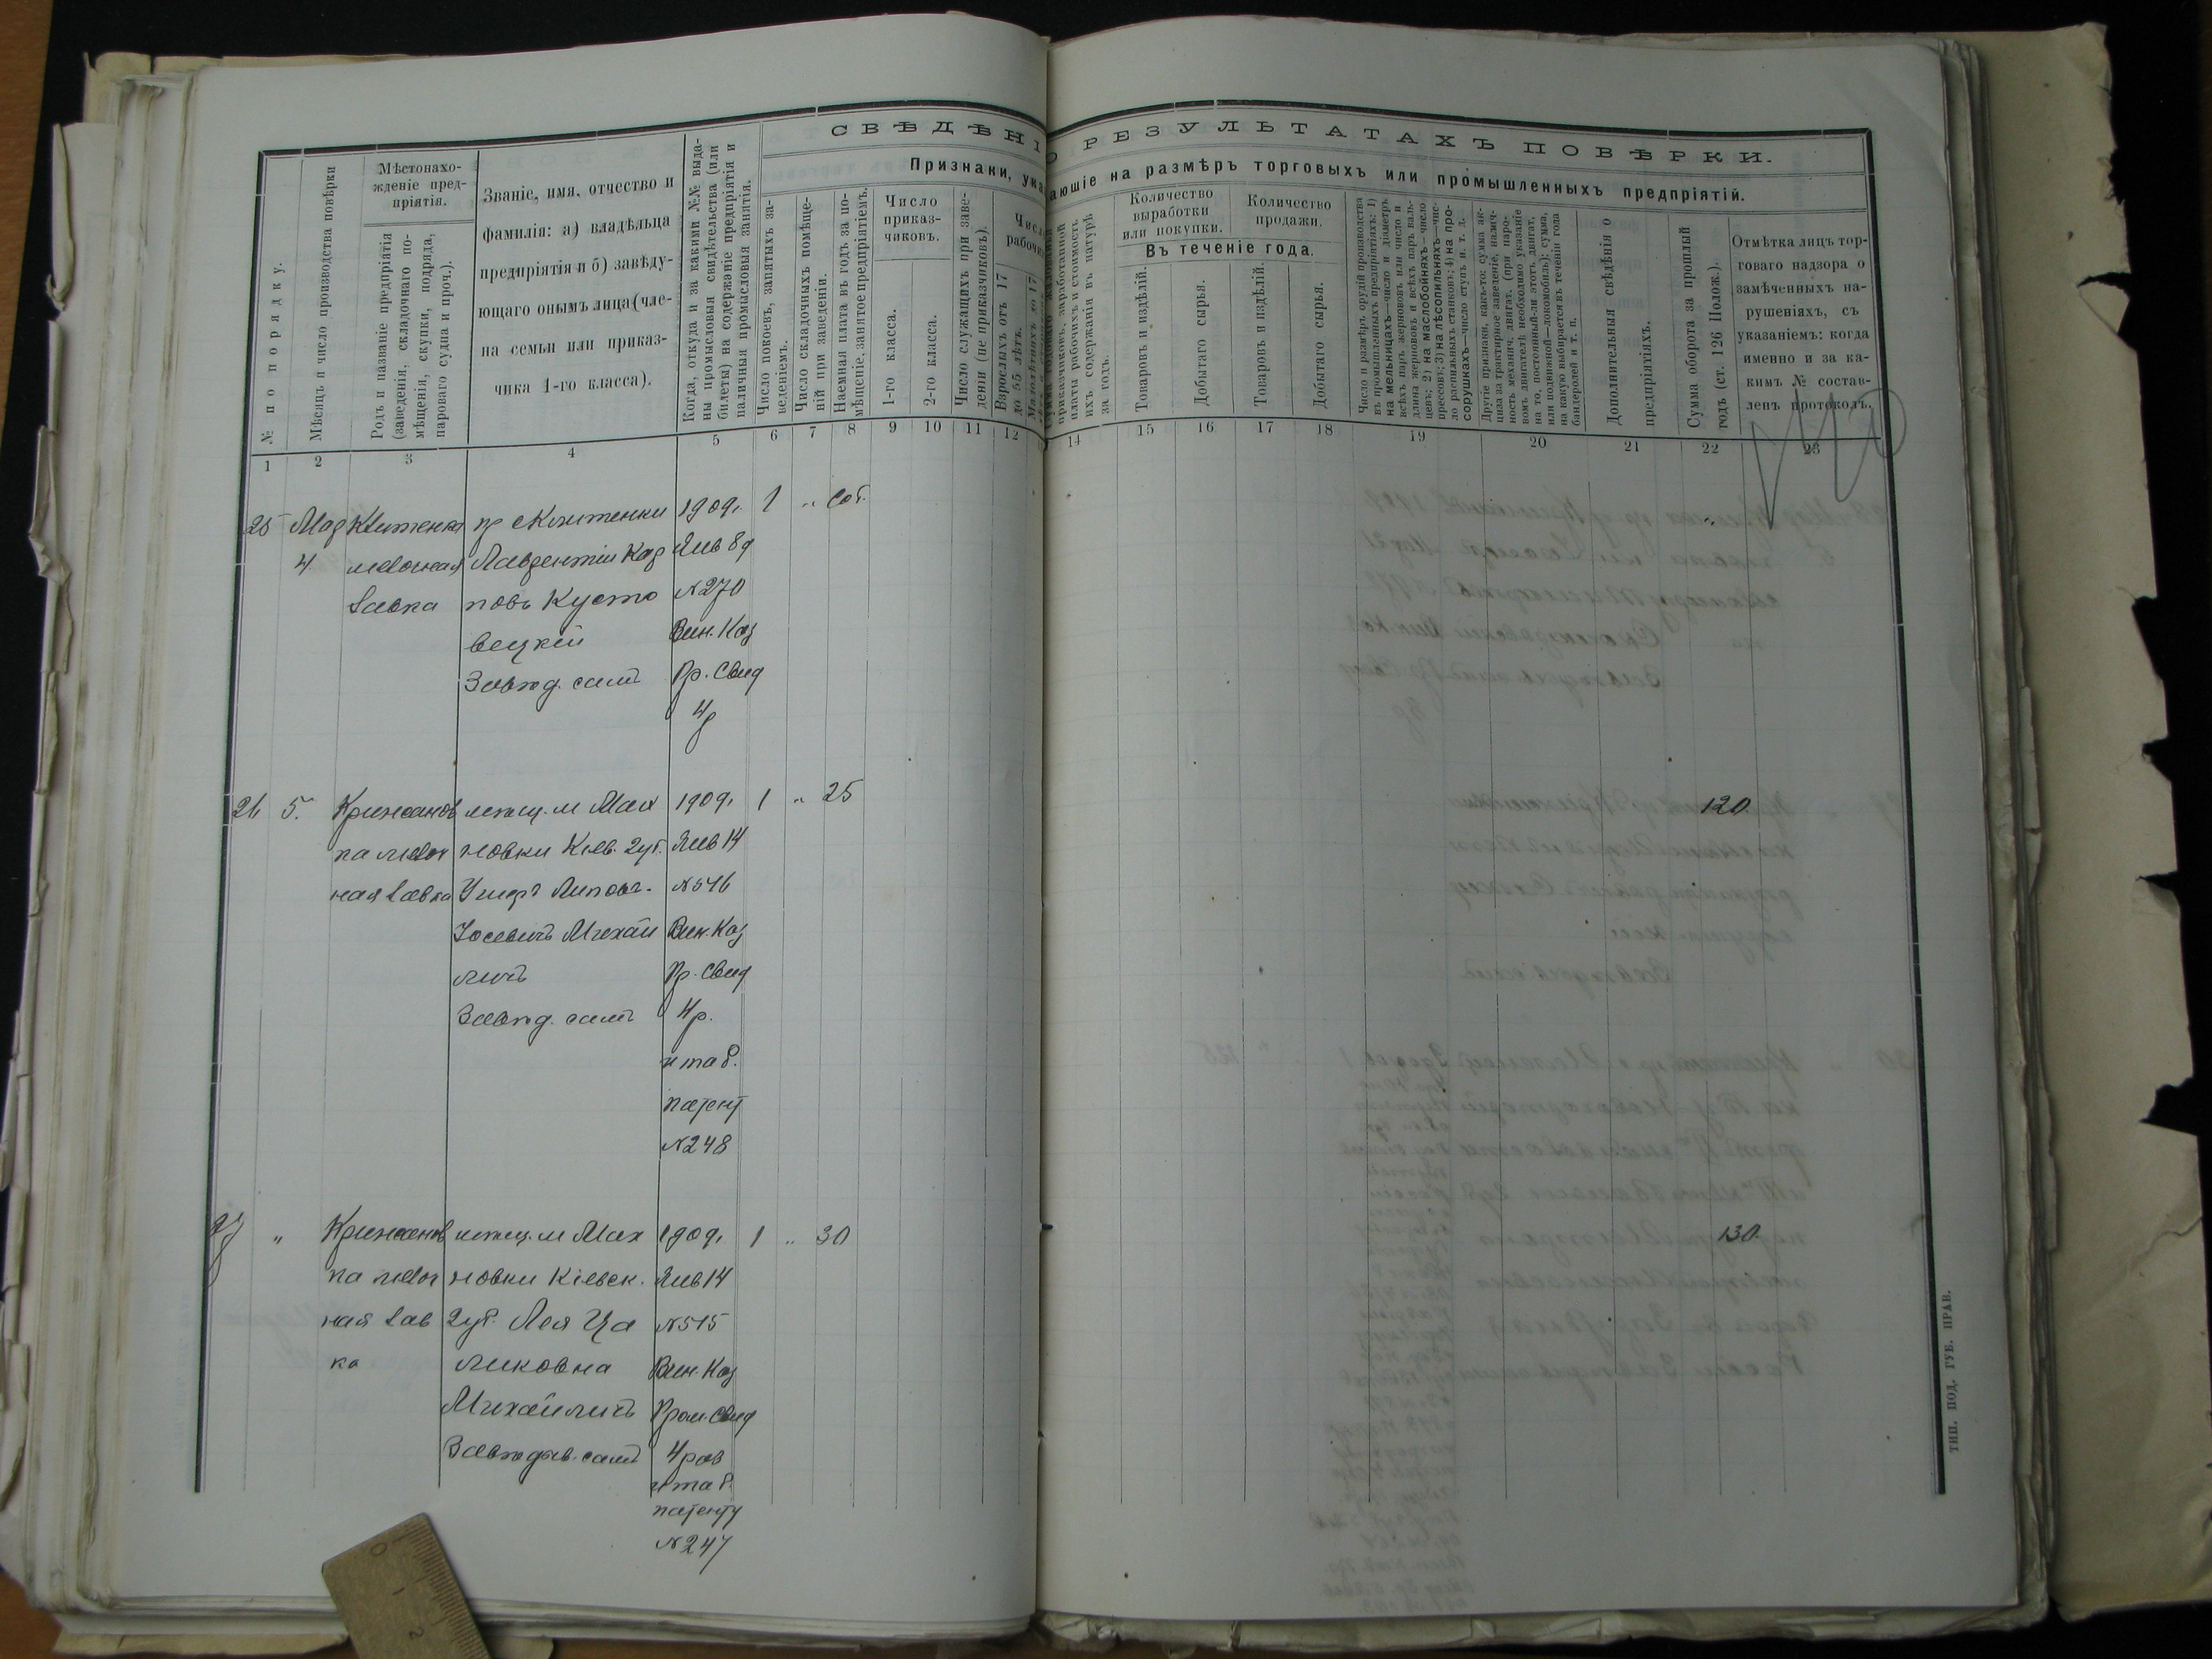 СВѢДѢНІ
О РЕЗУЛЬТАТАХЪ ПОВѢРКИ.
Признаки, ука
ающіе на размѣръ торговыхъ или промышленныхъ предпріятій.
№ по порядку.
Мѣсяцъ и число производства повѣрки
Мѣстонахо-
жденіе пред-
пріятія.
Родъ и названіе предпріятія
(заведенія, складочнаго по-
мѣщенія, скупки, подряда,
пароваго судна и проч.).
Званіе, имя, отчество и
фамилія: а) владѣльца
предпріятія и б) завѣду-
ющаго онымъ лица (чле-
на семьи или приказ-
чика 1-го класса).
Когда, откуда и за какими №№ выда-
ны промысловыя свидѣтельства (или
билеты) на содержаніе предпріятія и
наличныя промысловыя занятія.
Число покоевъ, занятыхъ за-
веденіемъ.
Число складочныхъ помѣще-
ній при заведеніи.
Наемная плата въ годъ за по-
мѣщеніе, занятое предпріятіемъ.
Число
приказ-
чиковъ.
1-го класса.
2-го класса.
Число служащихъ при заве-
деніи (не приказчиковъ).
Число
рабочи
Взрослыхъ отъ 17
до 55 лѣтъ.
приказчиковъ, заработанной
платы рабочихъ и стоимость
ихъ содержанія въ натурѣ
за годъ.
Количество
выработки
или покупки.
Количество
продажи.
Въ теченіе года.
Товаровъ и издѣлій.
Добытаго сырья.
Товаровъ и издѣлій.
Добытаго сырья.
Число и размѣръ орудій производства
въ промышленныхъ предпріятіяхъ: 1)
на мельницахъ—число и діаметръ
всѣхъ паръ жернововъ или число и
длина жернововъ и всѣхъ паръ валь-
цевъ; 2) на маслобойняхъ—число
прессовъ; 3) на лѣсопильняхъ—чис-
ло распильныхъ станковъ; 4) на про-
сорушкахъ—число ступъ и. т. д.
Другіе признаки, какъ-то: сумма ак-
циза за трактирное заведеніе, налич-
ность механич. двигат. (при паро-
вомъ двигателѣ необходимо указаніе
на то, постоянный-ли этотъ двигат.
или подвижной—локомобиль); сумма,
на какую выбирается въ теченіи года
бандеролей и т. п.
Дополнительныя свѣдѣнія о
предпріятіяхъ.
Сумма оборота за прошлый
годъ (ст. 126 Полож.).
Отмѣтка лицъ тор-
говаго надзора о
замѣченныхъ на-
рушеніяхъ, съ
указаніемъ: когда
именно и за ка-
кимъ № состав-
ленъ протоколъ.
1 2 3 4 5 6 7 8 9 10 11 12 14 15 16 17 18 19 20 21 22 23
25 Мар Клитенка кр с Клитенки 1909г. 1 „ соб.
4 мелочная Лаврентій Кар Янв 8д
лавка повъ Кусто №270
вецкій Вин. Каз
Завѣд. самъ Пр. Свид
4р
26 5. Крижанов мѣщ. м Мах 1909г. 1 „ 25 120.
ка мелоч новки Кіев. губ. Янв 14
ная лавка №516
Іосевичъ Михай Вин. Каз
личъ Пр. Свид
Завѣд. самъ 4р.
и таб.
патент
№248
27 „ Крижанов мѣщ. м Мах 1909г. 1 „ 30 130.
ка мелоч новки Кіевск. Янв 14
ная лав губ. Лея Ца №515
ка ликовна Вин. Каз
Михайличъ Пром. Свид
Завѣдыв. сама 4 раз
и таб.
патенту
№247
ТИП. ПОД. ГУБ. ПРАВ.